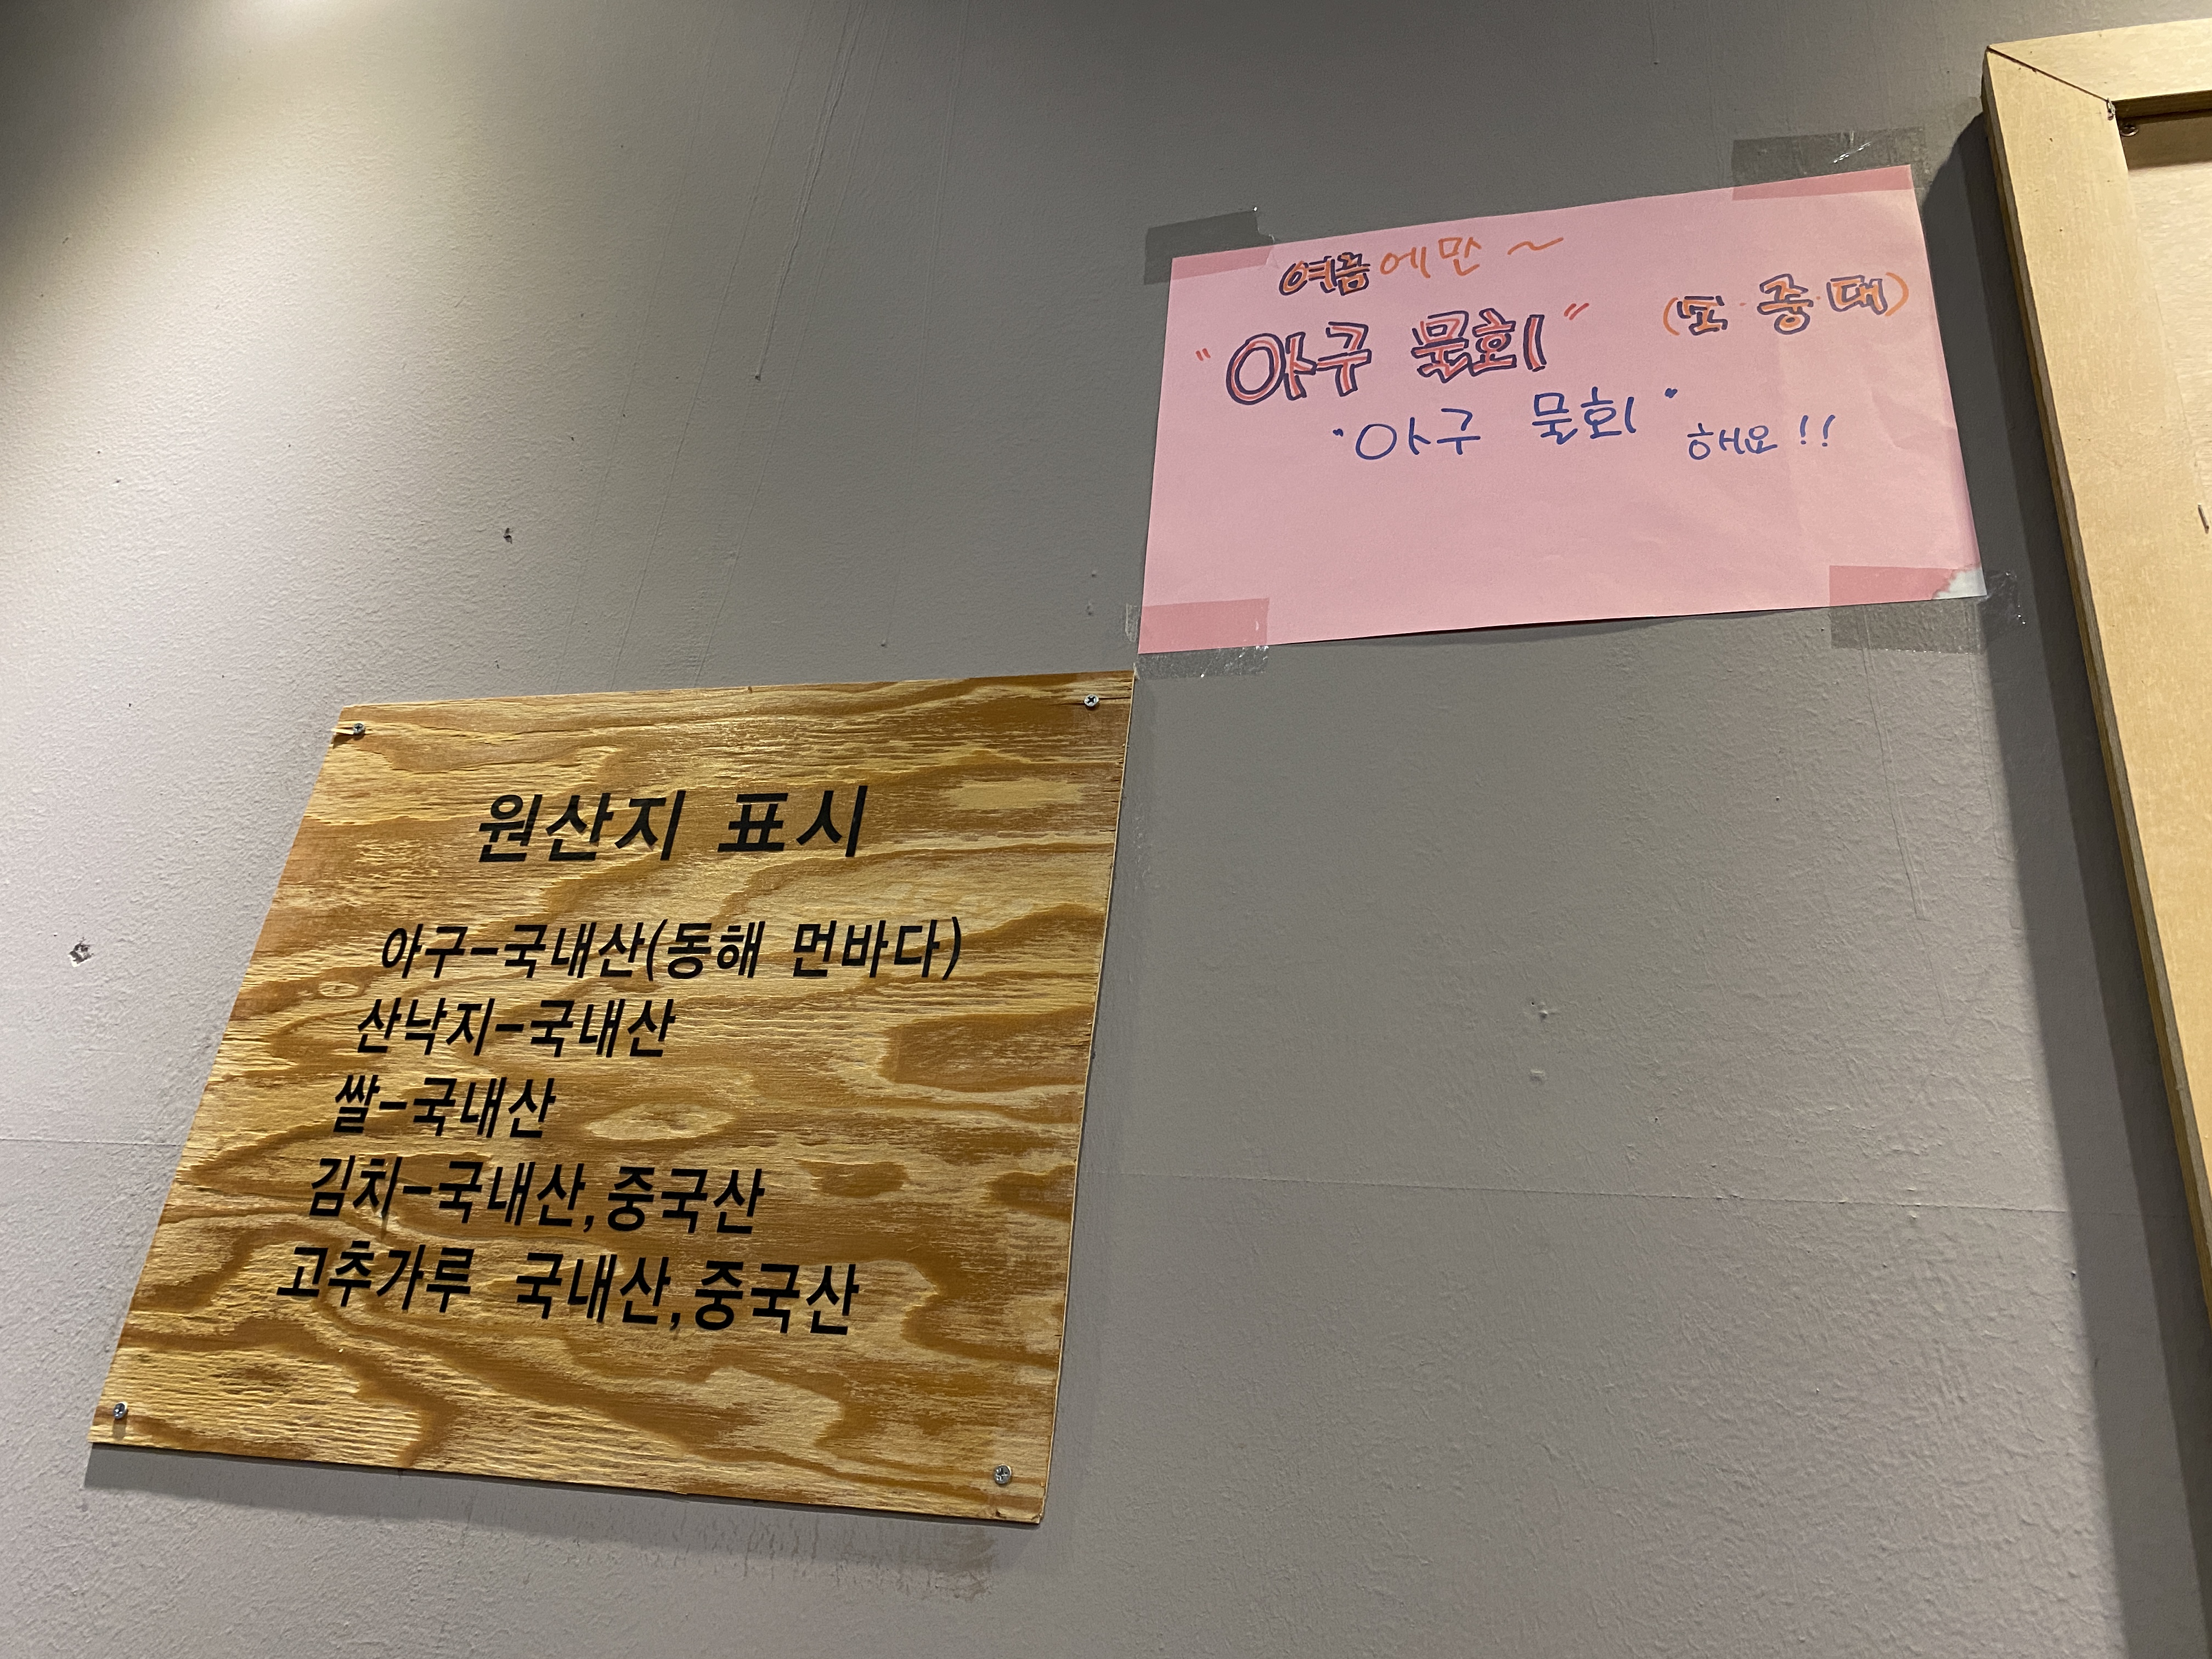 여름에만~
"아구 물회" (소·중·대)
"아구 물회" 해요!!
원산지 표시
아구-국내산(동해 먼바다)
산낙지-국내산
쌀-국내산
김치-국내산,중국산
고추가루 국내산,중국산